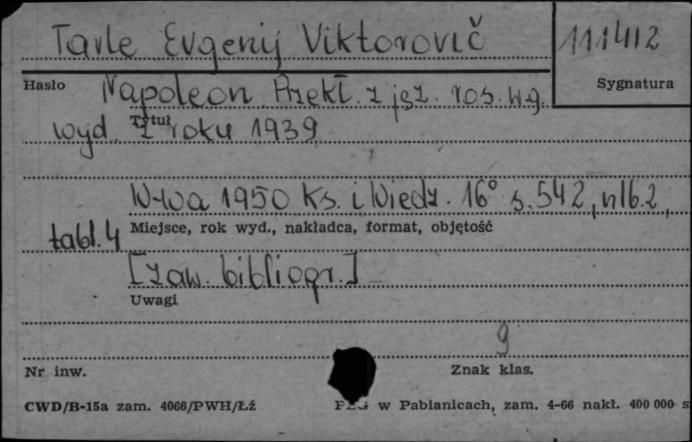 Tarle Evgenij Viktorovič
111412
Hasło
Sygnatura
Napoleon. Przekł. z jęz. ros. wg.
Tytuł
wyd. z roku 1939
W-wa 1950 Ks. i Wiedz. 16° s. 542, nlb. 2,
tabl. 4
Miejsce, rok wyd., nakładca, format, objętość
[zaw. bibliogr.]
Uwagi
9
Nr inw.
Znak klas.
CWD/B-15a zam. 4066/PWH/Łź
w Pabianicach, zam. 4-66 nakł. 400 000 s